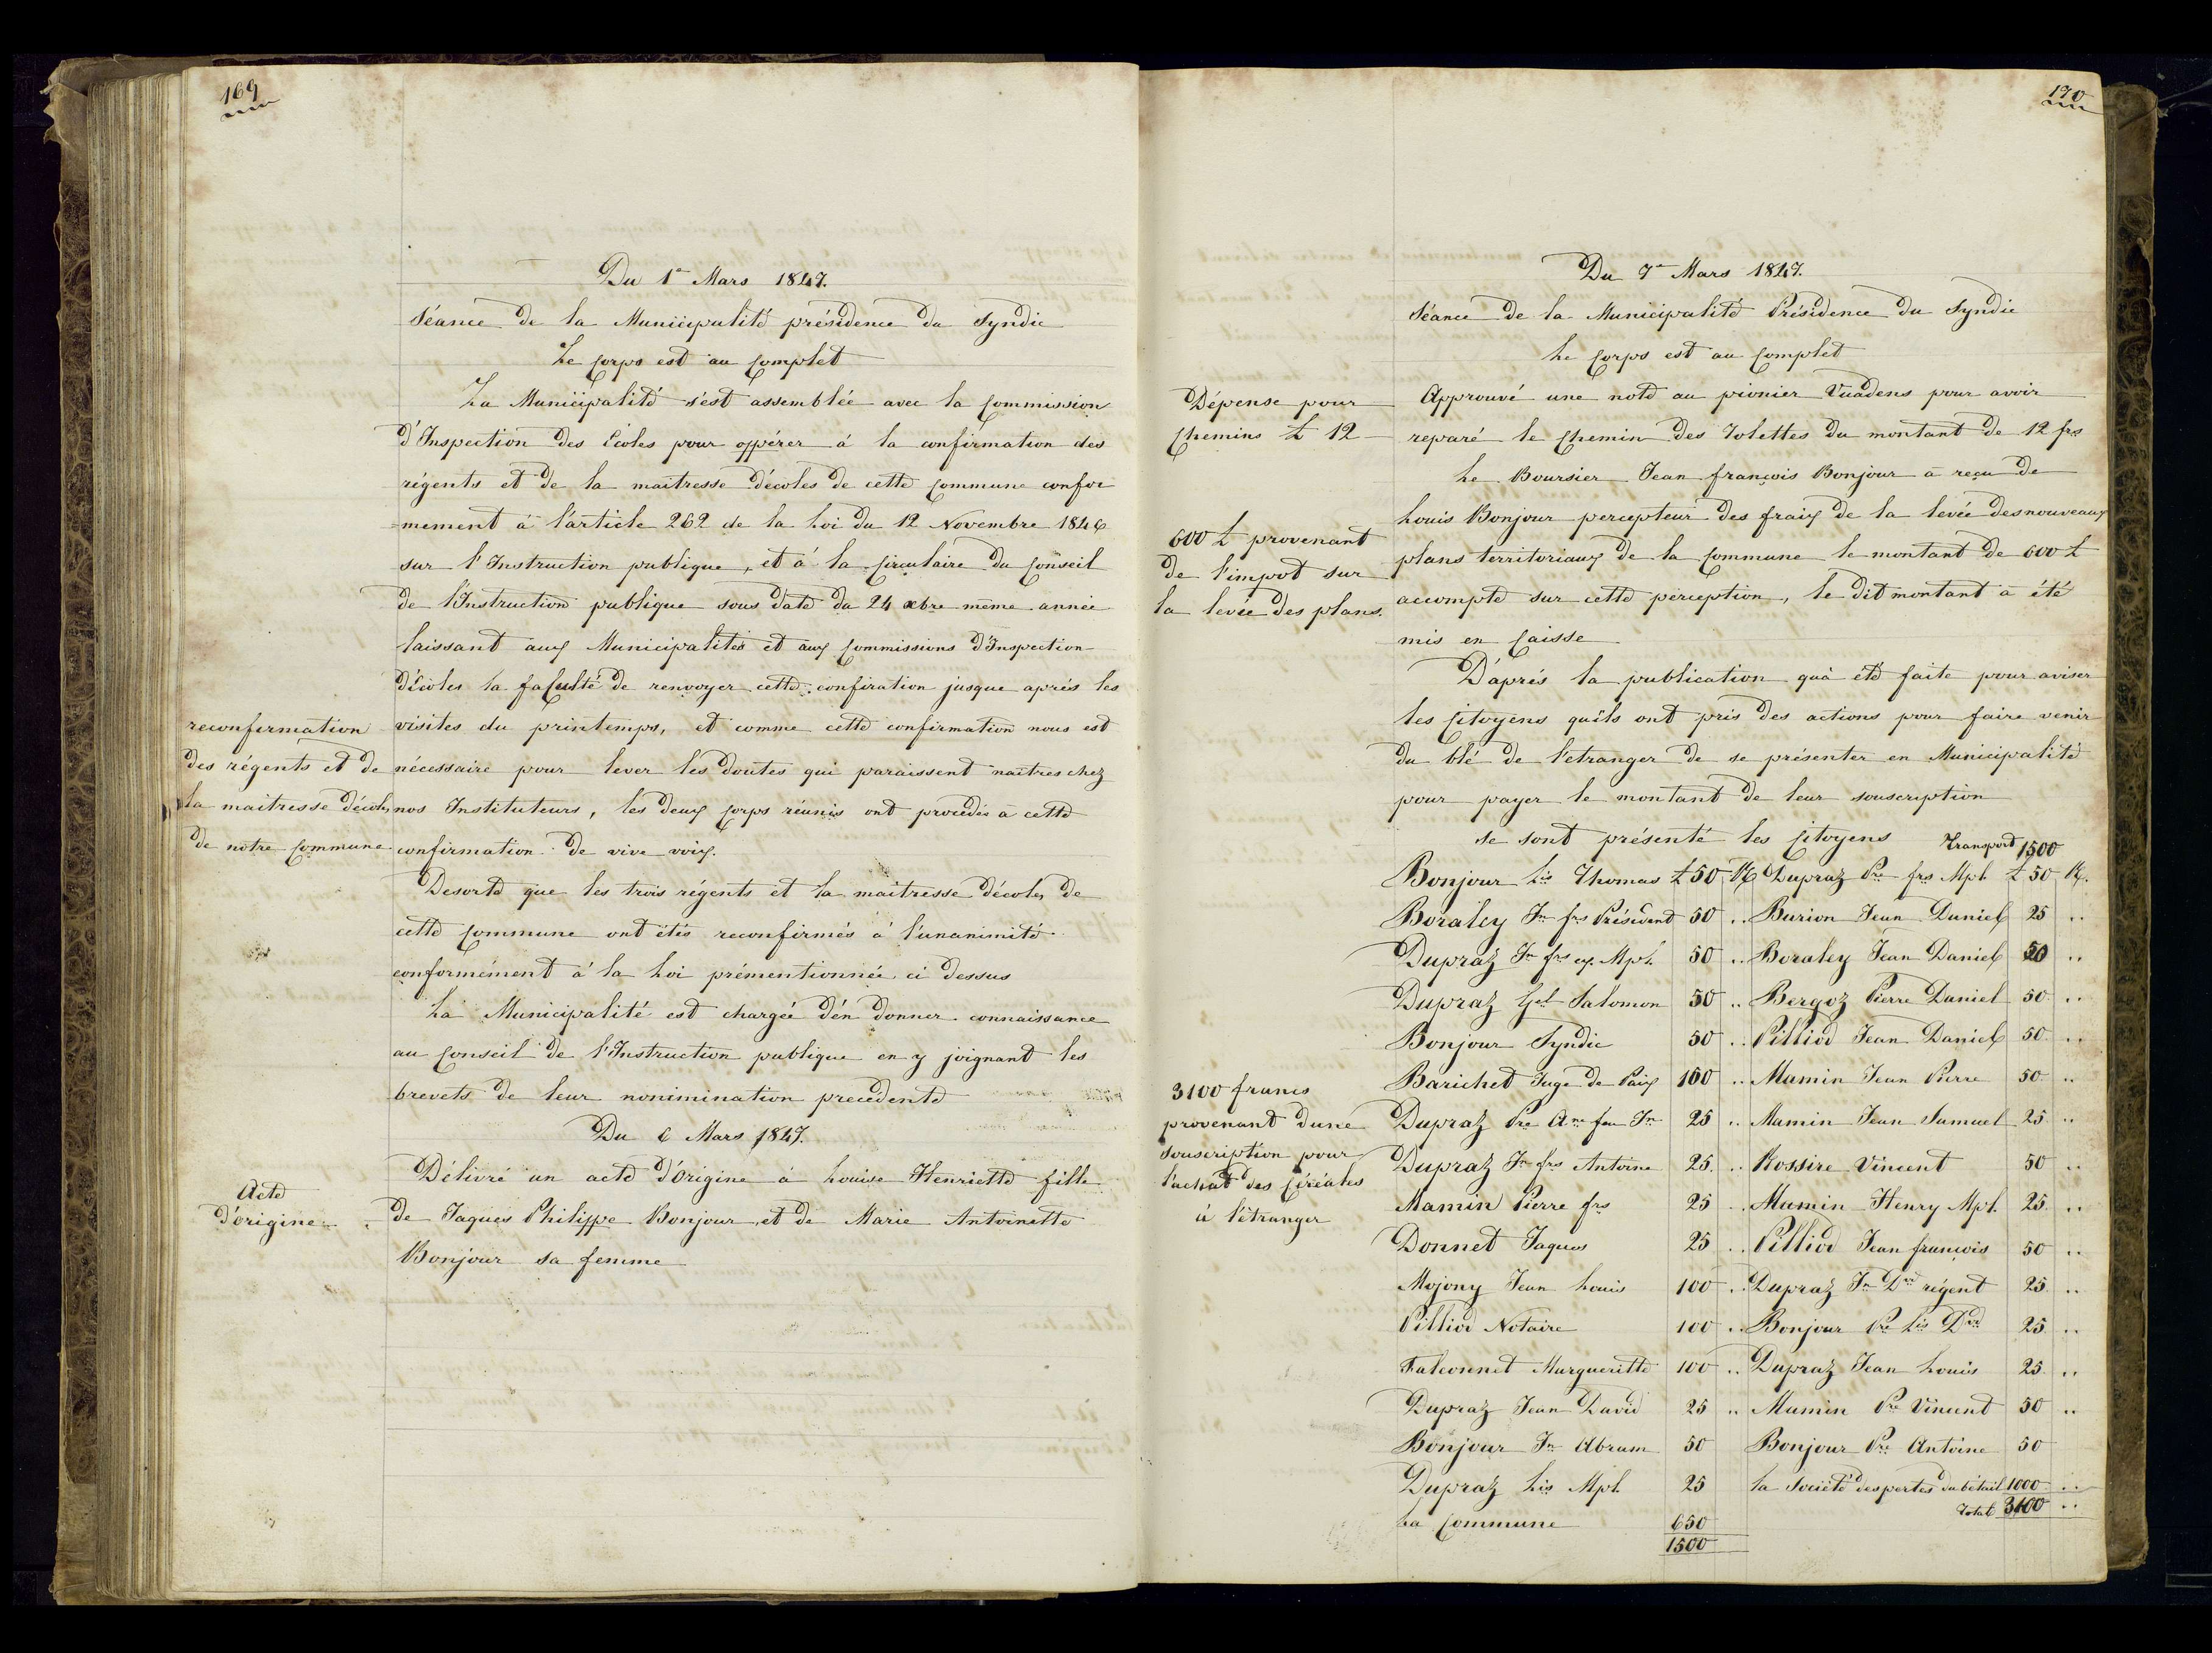 169
Du 1er Mars 1847.
Séance de la Municipalité présidence du Syndic
Le Corps est au Complet
La Municipalité s'est assemblée avec la Commission
d'Inspection des Ecoles pour oppérer à la confirmation des
régents et de la maitresse d'écoles de cette Commune confor
=mement à l'article 262 de la Loi du 12 Novembre 1846
sur l'Instruction publique, et à la Circulaire du Conseil
de l'Instruction publique sous date du 24 xbre même année
laissant aux Municipalités et aux Commissions d'Inspection
d'écoles la faculté de renvoyer cette confiration jusque après les
reconfirmation
des régents et de
la maitresse d'écoles
de notre Commune
visites du printemps, et comme cette confirmation nous est
nécessaire pour lever les doutes qui paraissent naitres chez
nos Instituteurs, les deux Corps réunis ont procédés à cette
confirmation de vive voix.
Desorte que les trois régents et la maitresse d'écoles de
cette Commune ont étés reconfirmés à l'unanimité
conformément à la Loi prémentionnée ci dessus
La Municipalité est chargée d'en donner connaissance
au Conseil de l'Instruction publique en y joignant les
brevets de leur nonimination precedente
Du 6 Mars 1847.
Acte
d'origine
Délivré un acte d'Origine à Louise Henriette fille
de Jaques Philippe Bonjour et de Marie Antoinette
Bonjour sa femme
170
Du 7e Mars 1847.
Séance de la Municipalité Présidence du Syndic
Le Corps est au Complet
Dépense pour
Chemins L 12
Approuvé une note au pionier Vuadens pour avoir
reparé le Chemin des Tolettes du montant de 12 frs
Le Boursier Jean françois Bonjour a reçu de
600 L provenant
de l'impot sur
la levée des plans.
Louis Bonjour percepteur des fraix de la levée des nouveaux
plans territoriaux de la Commune le montant de 600 L
accompte sur cette perception, le dit montant à été
mis en Caisse
D'après la publication qu'à été faite pour aviser
les Citoyens qu'ils ont pris des actions pour faire venir
du blé de l'etranger de se présenter en Municipalité
pour payer le montant de leur souscription
se sont présenté les Citoyens Transport 1500
3100 francs
provenant d'une
souscription pour
l'achat des Céréales
à l'étranger
Bonjour Ls Thomas L 50 Rz Dupraz Pre frs Mpl. L 50 Rz.
Boraley Jn frs Président 50 .. Burion Jean Daniel 25 ..
Dupraz Jn frs ex. Mpl. 50 .. Boraley Jean Daniel 50 ..
Dupraz Gel Salomon 50 .. Bergoz Pierre Daniel 50 ..
Bonjour Syndic 50 .. Pilliod Jean Daniel 50 ..
Barichet Juge de Paix 100 .. Mamin Jean Pierre 50 ..
Dupraz Pre Ane feu Jn 25 .. Mamin Jean Samuel 25 ..
Dupraz Jn frs Antoine 25 .. Rossire Vincent 50 ..
Mamin Pierre frs 25 .. Mamin Henry Mpl. 25 ..
Donnet Jaques 25 .. Pilliod Jean françois 50 ..
Mojony Jean Louis 100 .. Dupraz Jn Dd régent 25 ..
Pilliod Notaire 100 .. Bonjour Pre Ls Dd 25 ..
Falconnet Marguerite 100 .. Dupraz Jean Louis 25 ..
Dupraz Jean David 25 .. Mamin Pre Vincent 50 ..
Bonjour Jn Abram 50 Bonjour Pre Antoine 50
Dupraz Ls Mpl. 25 la Société des pertes du bétail 1000 ..
La Commune 650 Total 3100 ..
1500